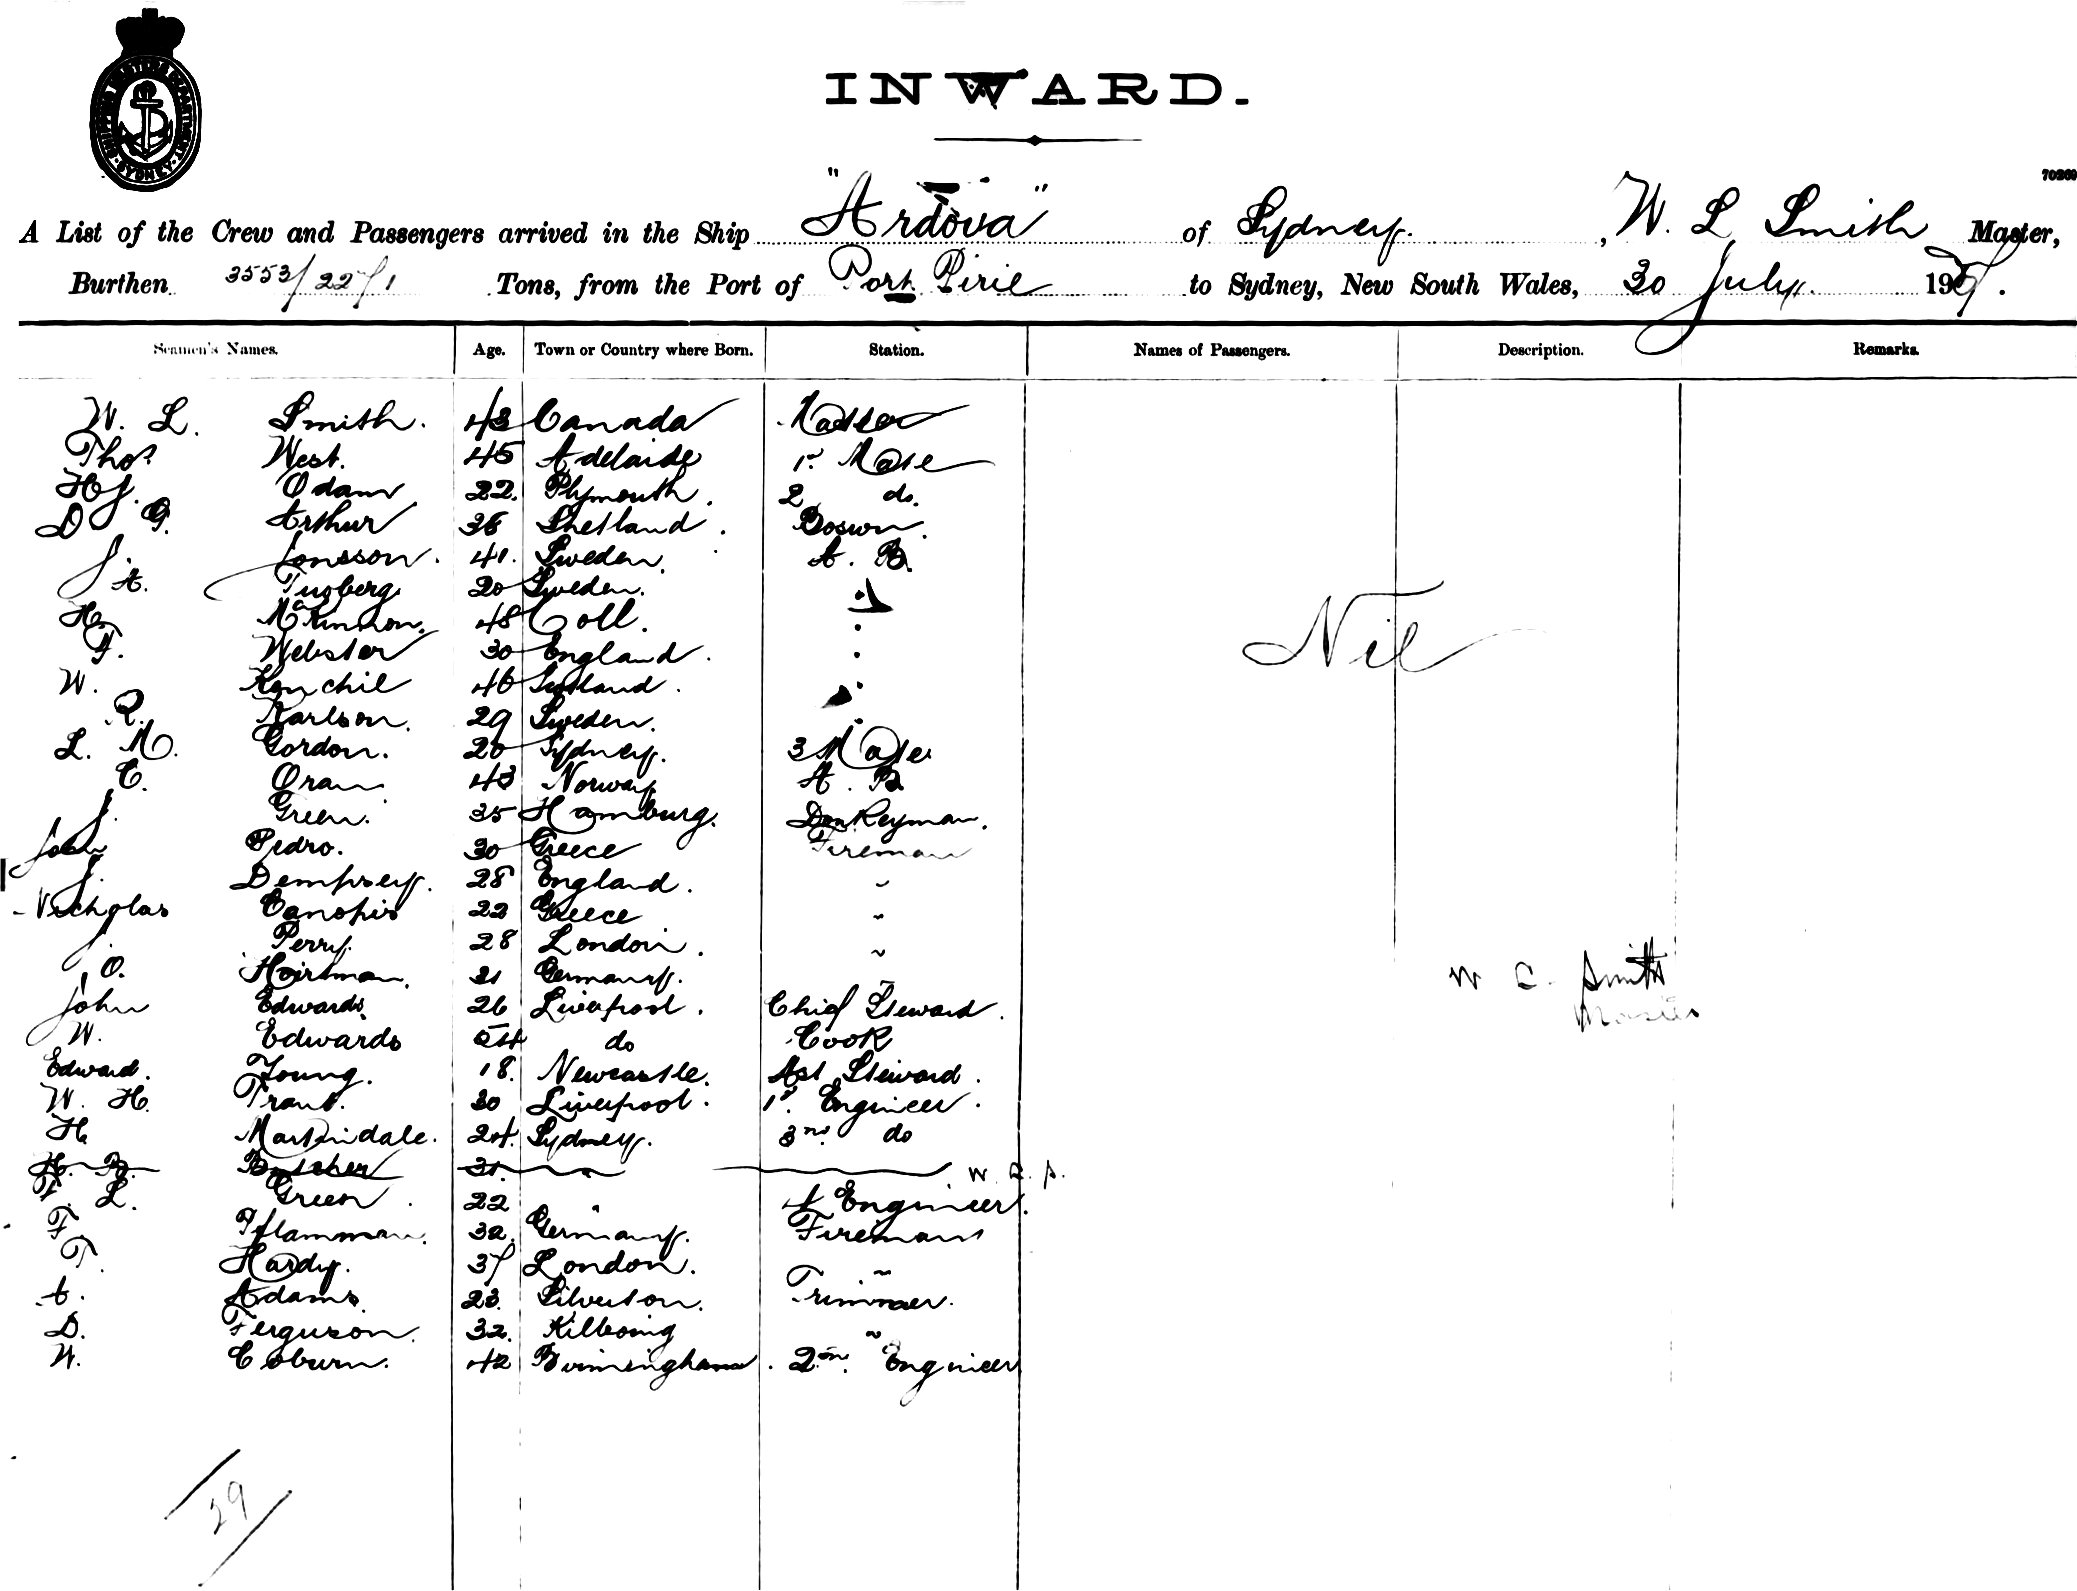 SHIPPING MASTERS DEPARTMENT
SYDNEY
INWARD.
70269
A List of the Crew and Passengers arrived in the Ship "Ardova" of Sydney. , W. L Smith Master,
Burthen 3553/2271 Tons, from the Port of Port Pirie to Sydney, New South Wales, 30 July 190
Seamen's Names. Age. Town or Country where Born. Station. Names of Passengers. Description. Remarks.
W. L. Smith. 43 Canada Master
Thos West. 45 Adelaide 1st Mate
H J. Odam 22. Plymouth. 2 do.
D G. Arthur 36 Shetland. Boswn.
J. Jonsson. 41. Sweden. A. B.
A. Tugberg 20 Sweden.
H. McKinnon. 48 Coll.
F. Webster 30 England.
W. Kenchil 46
R. Karlson. 29 Sweden.
L. M. Gordon. 20 Sydney. 3 Mate
C. Oram 43 Norway A. B
J. Green. 35 Hamburg. Donkeyman.
John Pedro. 30 Greece Fireman
J. Dempsey. 28 England. "
Nicholas Canopis 22 Greece "
J. Perry. 28 London. "
O. Hoirman. 21 Germany. "
John Edwards. 26 Liverpool. Chief Steward.
W. Edwards 54 do Cook
Edward. Young. 18. Newcastle. Ast Steward.
W. H. Trant. 30 Liverpool. 1st. Engineer.
H Martindale. 24. Sydney. 3rd do
H. B. Butcher 31. W. L. S.
F L. Green 22 " 4 Engineer.
F Pflamman. 32. Germany. Fireman
T. Hardy. 37 London. "
A. Adams. 23. Silverton. Trimmer.
D. Ferguson. 32. "
W. Coburn. 42 Birmingham. 2nd. Engineer
Nil
W L. Smith
Master
29